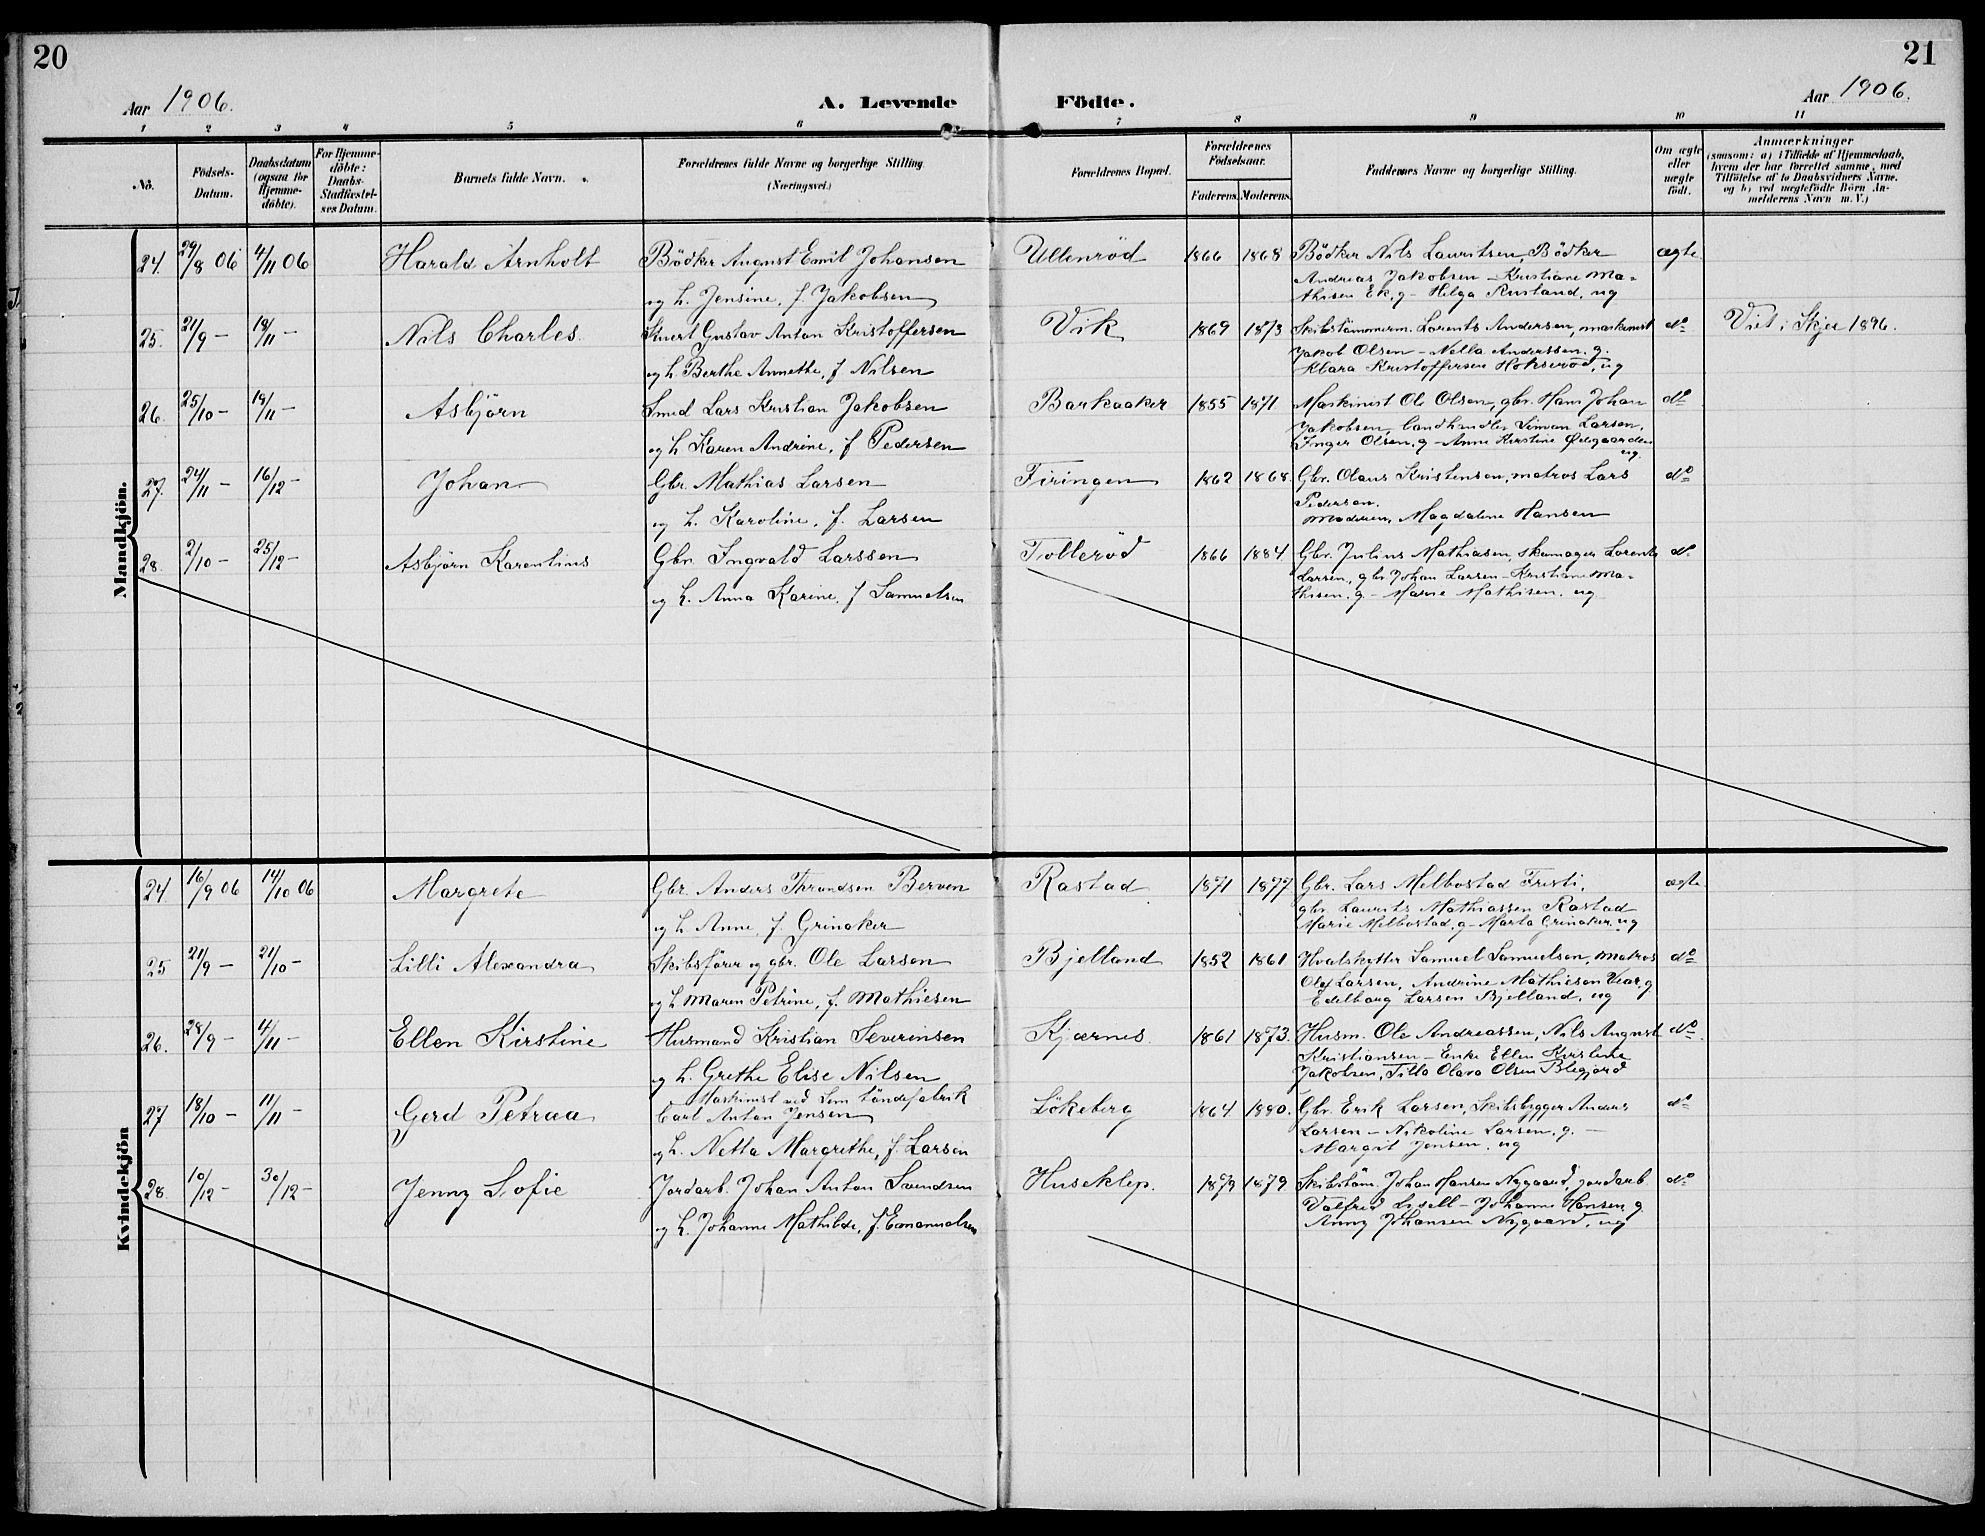 20
21
Aar 1906.
A. Levende Födte.
Aar 1906.
1 2 3 4 5 6 7 8 9 10 11
No.
Födsels-Datum.
Daabsdatum (ogsaa for Hjemme-döbte).
For Hjemme-döbte: Daabs-Stadfæstel-ses Datum.
Barnets fulde Navn.
Forældrenes fulde Navne og borgerlige Stilling (Næringsvei.)
Forældrenes Bopæl.
Forældrenes Födselsaar.
Faderens. Moderens.
Faddernes Navne og borgerlige Stilling.
Om ægte eller uægte födt.
Anmærkninger
(saasom: a) i Tilfælde af Hjemmedaab, hvem der har forrettet samme, med Tilföielse af to Daabsvidners Navne. og b) ved uægtefödte Börn An-melderens Navn m. V.)
Mandkjön.
24. 29/8 06 4/11 06 Harald Arnholt Bödker August Emil Johansen Ullenröd 1866 1868 Bödker Nils Lauritsen, Bödker ægte
Andreas Jakobsen – Kristiane Ma-
og h. Jensine, f. Jakobsen thisen Ek, g – Helga Rustand, ug
25. 21/9 – 18/11 – Nils Charles Stuert Gustav Anton Kristoffersen Vik 1869 1873 Skibstömmerm. Lorents Andersen, maskinist do Viet i Skjee 1896.
Jakob Olsen – Nella Anderssen, g.
og h. Berthe Annethe, f Nilsen Klara Kristoffersen Hokseröd, ug
26. 25/10 – 18/11 – Asbjörn Smed Lars Kristian Jakobsen Barkaaker 1855 1871 Maskinist Ole Olsen, gbr. Hans Johan do
Jakobsen, landhandler Simon Larsen,
og h Karen Andrine, f Pedersen Inger Olsen, g – Anne Kirstine Ödegaarden
ug.
27. 24/11 – 16/12 – Johan Gbr. Mathias Larsen Firingen 1862 1868. Gbr. Olaus Kristensen, matros Lars do
Pedersen.
og h. Karoline, f. Larsen Moderen, Magdalene Hansen
28. 2/10 – 25/12 – Asbjörn Karentins Gbr. Ingvald Larssen Tolleröd 1866 1884. Gbr. Julius Mathiasen, skomager Lorents do
Larsen, gbr Johan Larsen – Kristiane Ma-
og h. Anna Karine, f Samuelsen thisen. g – Marie Mathisen. ug
Kvindekjön
24 16/9 06 14/10 06 Margrete Gbr. Anders Thrandsen Berven Rastad 1871 1877 Gbr. Lars Melbostad Fresti, ægte
gbr. Laurits Mathiassen Rastad
og h Anne, f. Grinaker Marie Melbostad, g – Marta Grinaker, ug
25 21/9 – 21/10 – Lilli Alexandra Skibsförer og gbr. Ole Larsen Bjelland 1852 1861 Hvalskytter Samuel Samuelsen, matros do
Olaf Larsen, Andrine Mathiesen Vear, g
og h Maren Petrine, f. Mathiesen Edelborg Larsen Bjelland, ug
26. 28/9 – 4/11 – Ellen Kirstine Husmand Kristian Severinsen Kjærnes. 1861 1873. Husm. Ole Andreassen, Nils August do
Kristiansen – Enke Ellen Kirstine
og h. Grethe Elise Nilsen Jakobsen, Tilla Olava Olsen Blegjord
27 18/10 – 11/11 – Gerd Petraa Maskinist ved Lem töndefabrik
Carl Anton Jensen Lökeberg 1864 1880. Gbr. Erik Larsen, Skibsbygger Anders do
Larsen – Nikoline Larsen, g. –
og h. Netta Margrethe, f. Larsen Margit Jensen. ug
28. 10/12 – 30/12 – Jenny Sofie Jordarb. Johan Anton Svendsen Huseklep. 1879 1879 Skibstöm. Johan Hansen Nygaard, jordarb do
Valfrid Lisell – Johanne Hansen g
og h. Johanne Mathilde, f Emanuelsen Anny Johansen Nygaard, ug